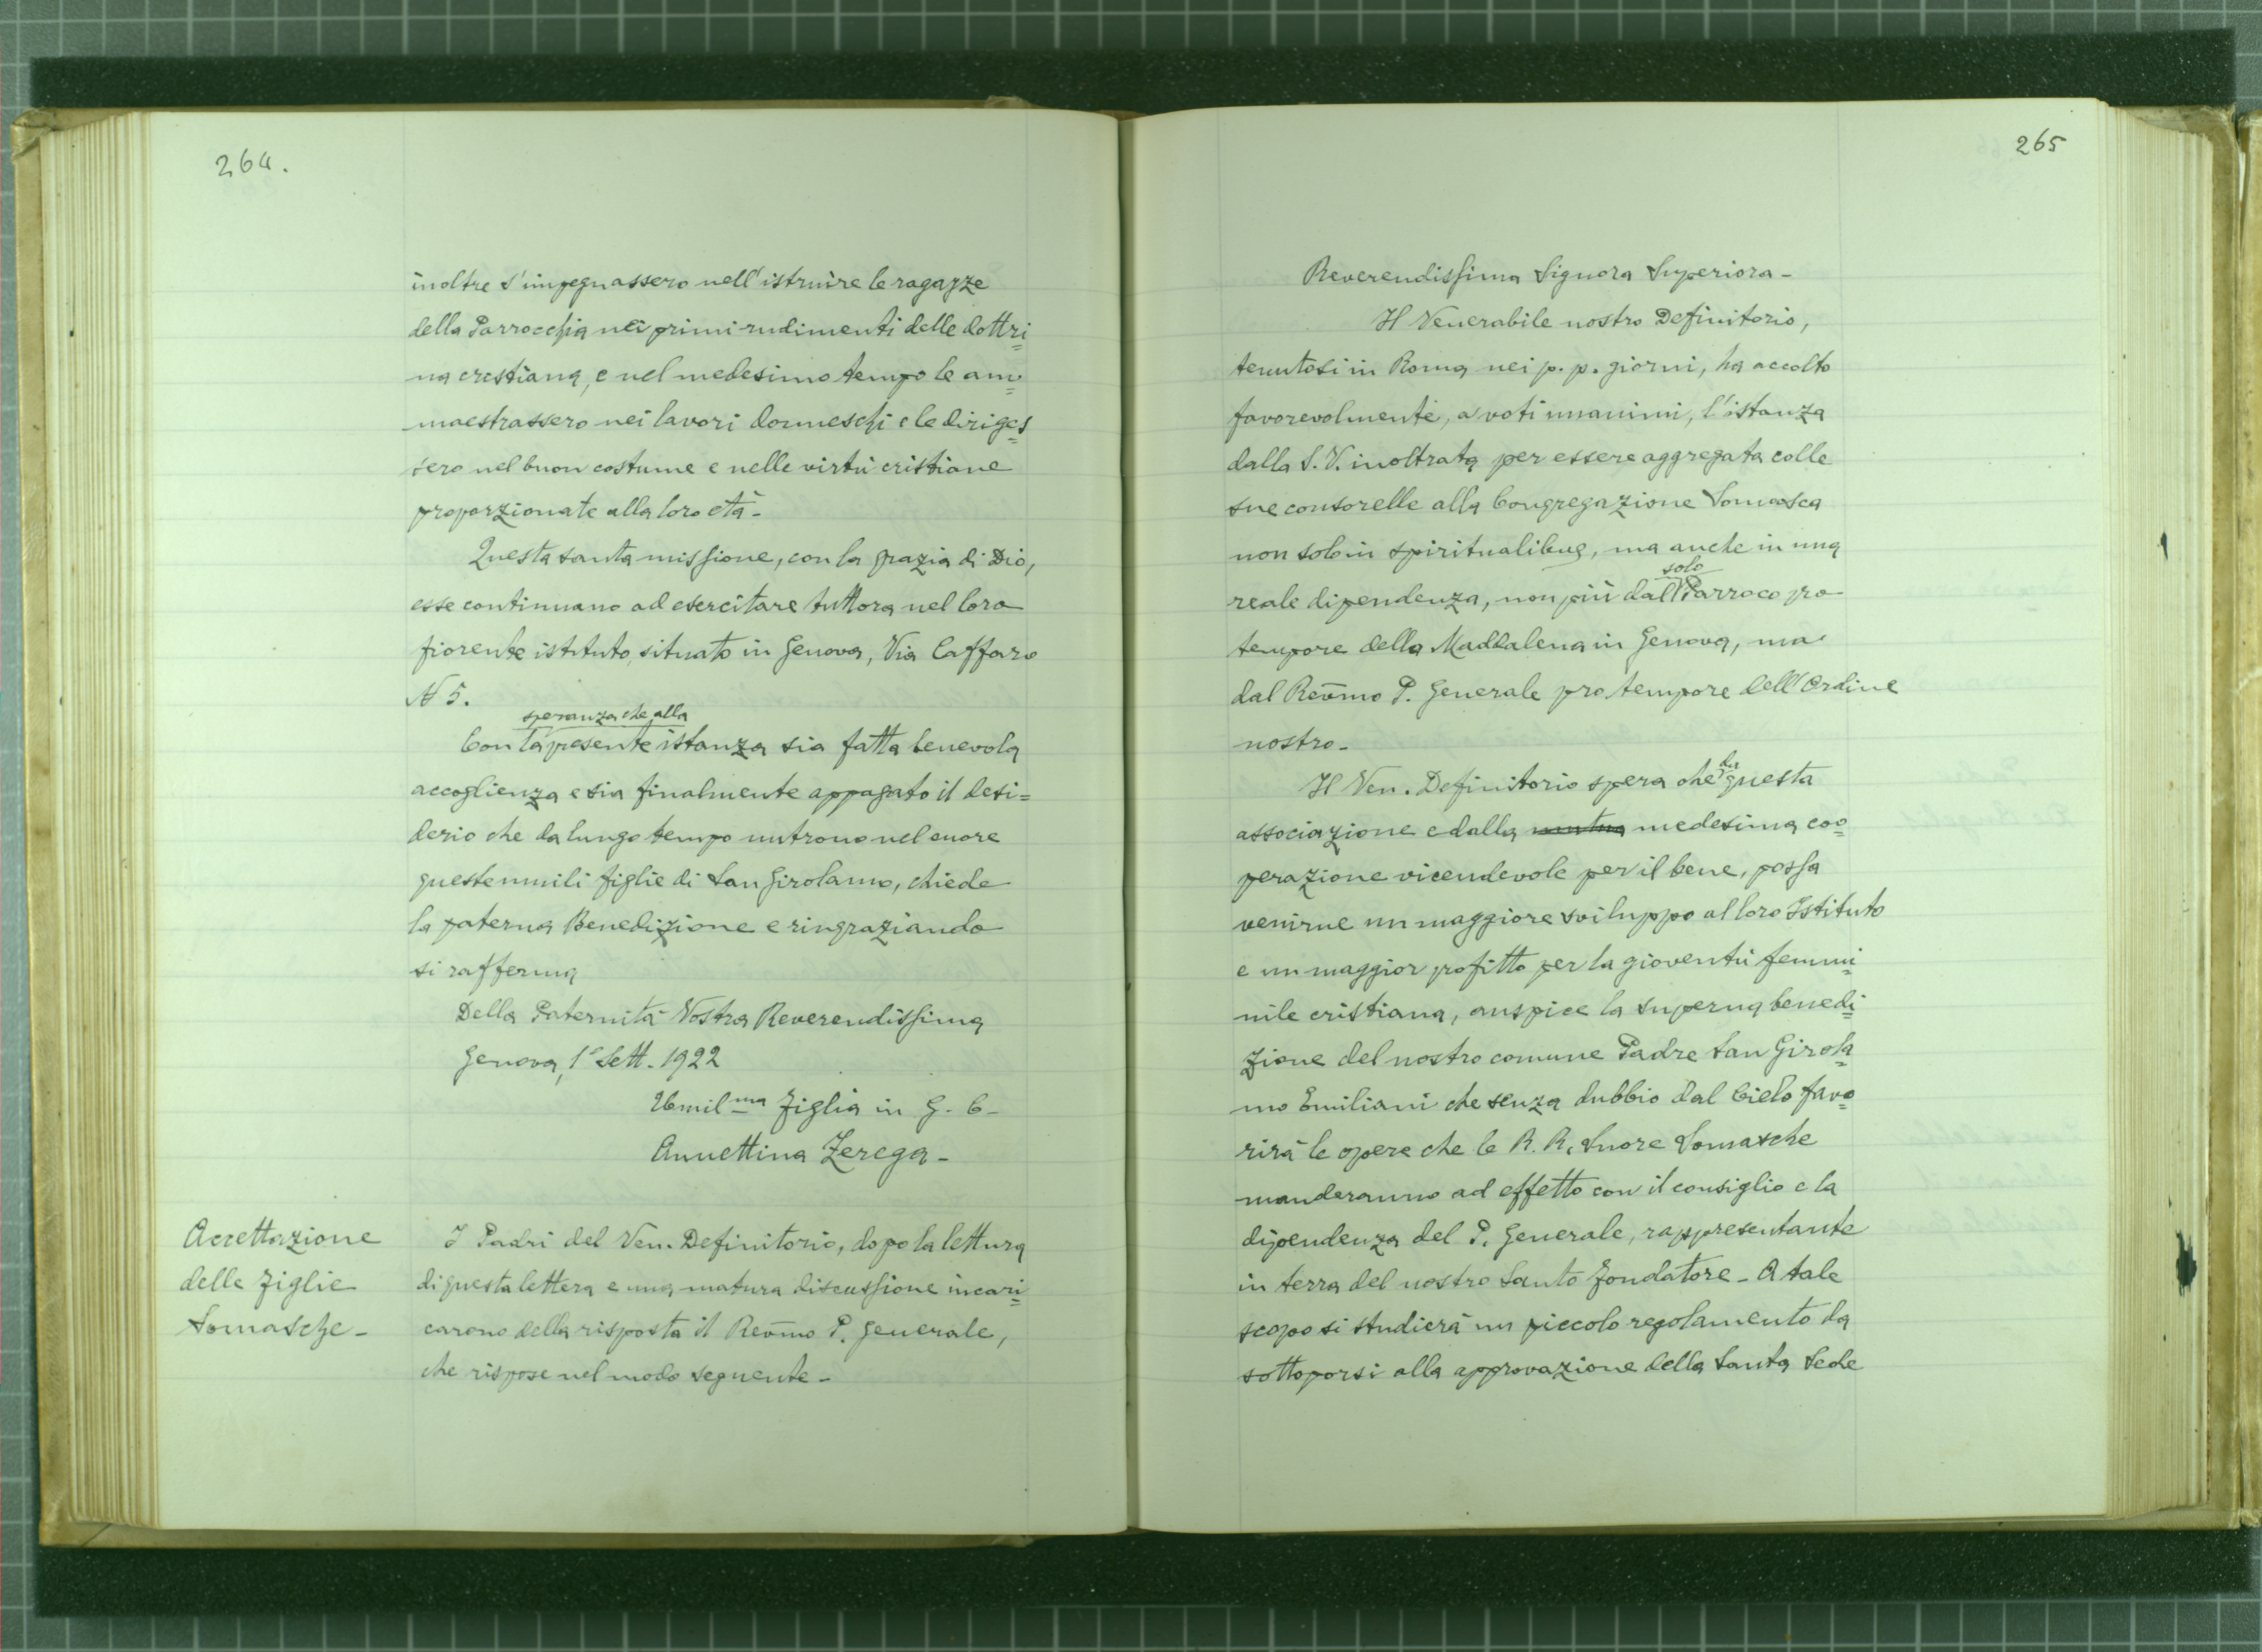 264.
inoltre s'impegnassero nell'istruire le ragazze
della Parrocchia nei primi rudimenti delle dottri=
na crestiana, e nel medesimo tempo le am=
maestrassero nei lavori donneschi e le diriges=
sero nel buon costume e nelle virtù cristiane
proporzionate alla loro età -
Questa santa missione, con la grazia di Dio,
esse continuano ad esercitare tuttora nel loro
fiorente istituto, situato in Genova, Via Caffaro
N 5.
speranza che alla
Con la presente istanza sia fatta benevola
accoglienza e sia finalmente appagato il desi=
derio che da lungo tempo nutrono nel cuore
queste umili figlie di San Girolamo, chiede
la paterna Benedizione e ringraziando
si rafferma
Della Paternità Vostra Reverendissima
Genova, 1° Sett. 1922
Umil ma Figlia in G. C -
Annettina Zerega -
Accettazione
delle Figlie
Somasche -
I Padri del Ven. Definitorio, dopo la lettura
di questa lettera e una matura discussione incari=
carono della risposta il Revmo P. Generale,
che rispose nel modo seguente -
265
Reverendissima Signora Superiora -
Il Venerabile nostro Definitorio,
tenutosi in Roma nei p. p. giorni, ha accolto
favorevolmente, a voti unanimi, l'istanza
dalla S. V. inoltrata per essere aggregata colle
sue consorelle alla Congregazione Somasca
non solo in spiritualibus, ma anche in una
solo
reale dipendenza, non più dal Parroco pro
tempore della Maddalena in Genova, ma
dal Revmo P. Generale pro tempore dell'Ordine
nostro -
da
Il Ven. Definitorio spera che questa
associazione e dalla mutua medesima coo=
perazione vicendevole per il bene, possa
venirne un maggiore sviluppo al loro Istituto
e un maggior profitto per la gioventù femmi=
nile cristiana, auspice la superna benedi=
zione del nostro comune Padre San Girola=
mo Emiliani che senza dubbio dal Cielo favo=
rirà le opere che le R. R. Suore Somasche
manderanno ad effetto con il consiglio e la
dipendenza del P. Generale, rappresentante
in terra del nostro Santo Fondatore - A tale
scopo si studierà un piccolo regolamento da
sottoporsi alla approvazione della Santa Sede